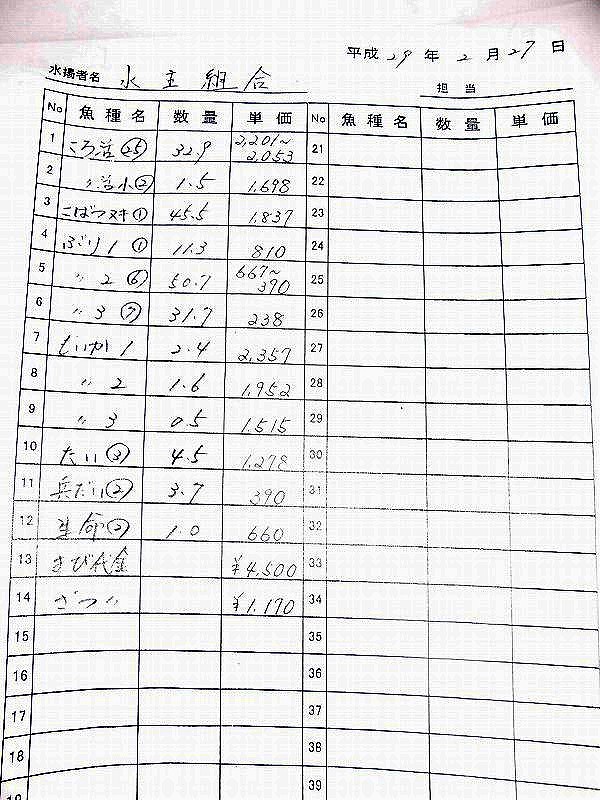 平成 29 年 2 月 27 日
水揚者名 水主組合
担当
No 魚種名 数量 単価 No 魚種名 数量 単価
1 ころ活㉕ 32.9 2,201~2,053 21
2 〃活小② 1.5 1,698 22
3 こばつヌキ① 45.5 1,837 23
4 ぶり1① 11.3 810 24
5 〃2⑥ 50.7 667~390 25
6 〃3⑦ 31.7 238 26
7 むいか1 2.4 2,357 27
8 〃2 1.6 1,952 28
9 〃3 0.5 1,515 29
10 たい③ 4.5 1,278 30
11 兵だい② 3.7 390 31
12 ② 1.0 660 32
13 代金 ¥4,500 33
14 ざつ〃 ¥1,170 34
15 35
16 36
17 37
18 38
39